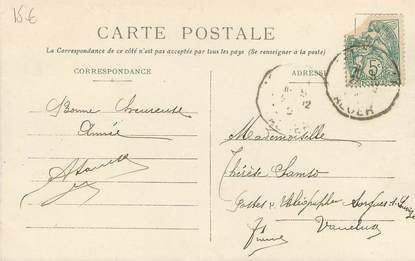 15€
CARTE POSTALE
La Correspondance de ce côté n'est pas acceptée par tous les pays (Se renseigner à la poste)
CORRESPONDANCE
ADRESSE
5
ALGER
ALGER
Bonne Heureuse
Année
Mademoiselle
Thérèse
Postes & Télégraphes Sorgues-s-
Vaucluse